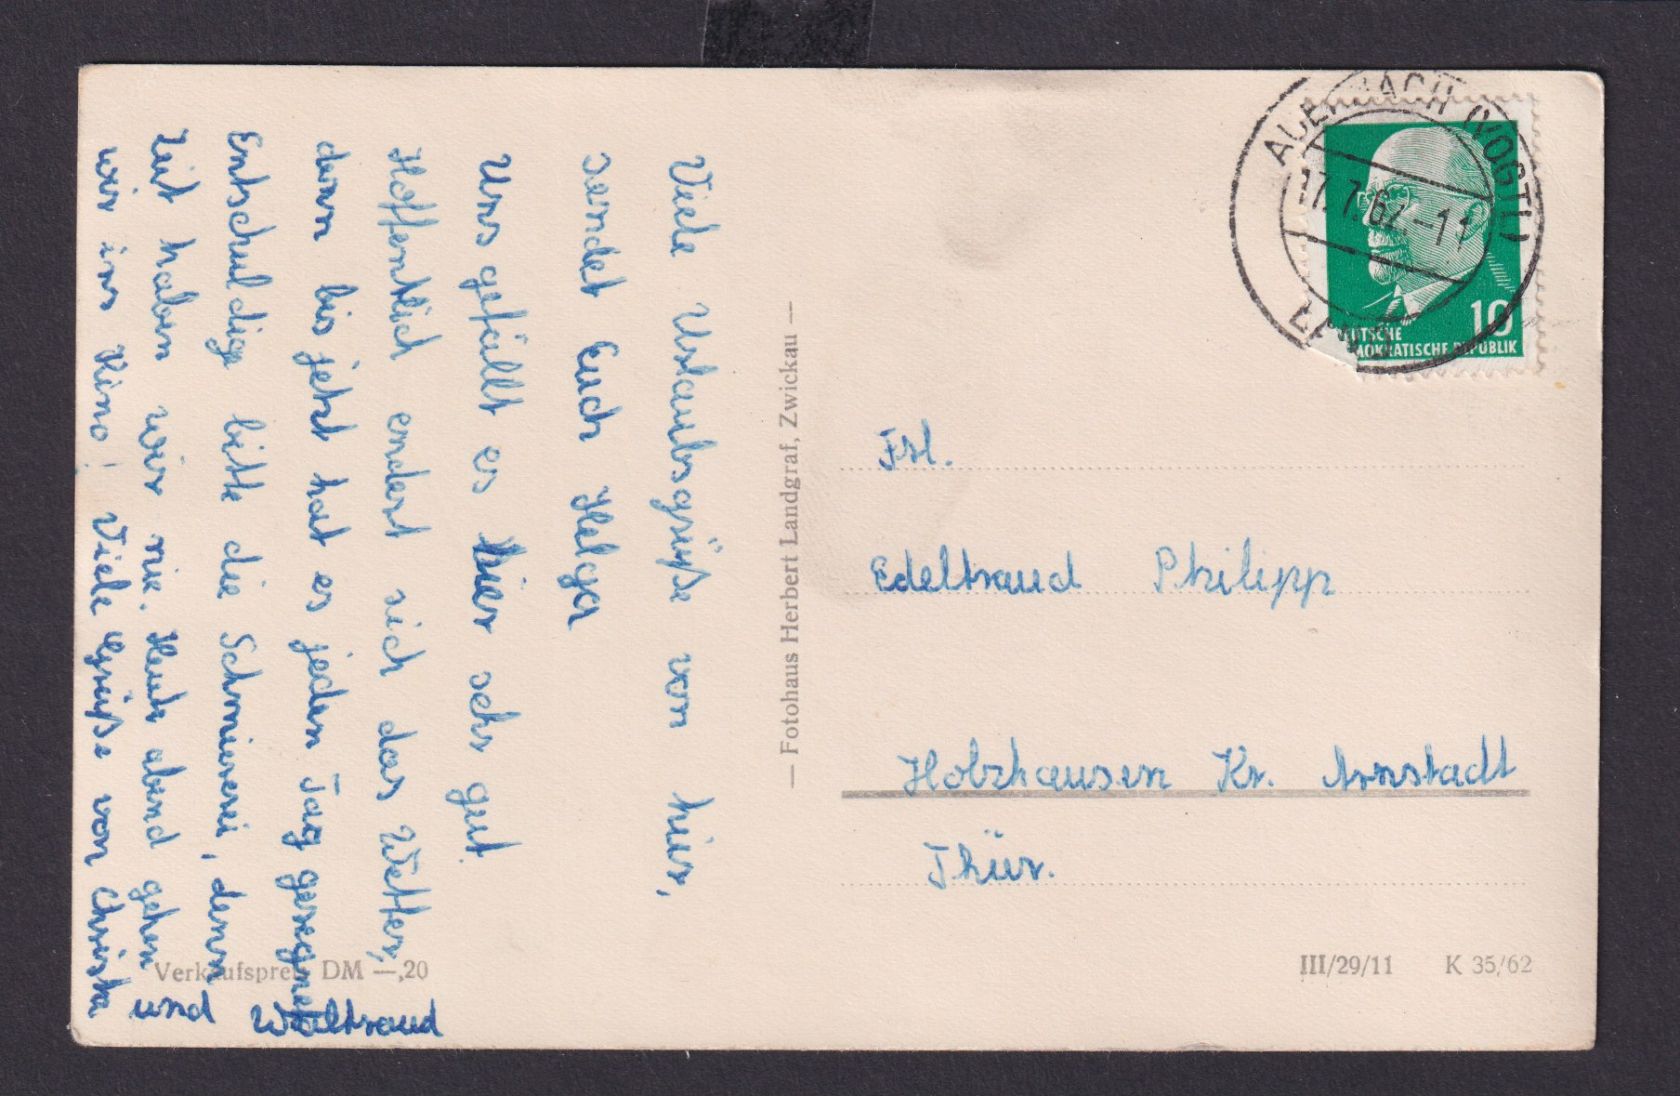 Viele Urlaubsgrüße von hier,
sendet Euch Helga
Uns gefällt es hier sehr gut
Hoffentlich endert sich das Wetter,
denn bis jetzt hat es jeden Tag geregnet
Entschuldige bitte die Schmiererei, denn
Zeit haben wir nie. Heute abend gehen
wir ins Kino! Viele Grüße von Christa
und Waltraud
— Fotohaus Herbert Landgraf, Zwickau —
Verkaufspreis DM —,20
AUERBACH (VOGTL)
17.7.62.–11
10
DEUTSCHE
DEMOKRATISCHE REPUBLIK
Frl.
Edeltraud Philipp
Holzhausen Kr. Arnstadt
Thür.
III/29/11 K 35/62